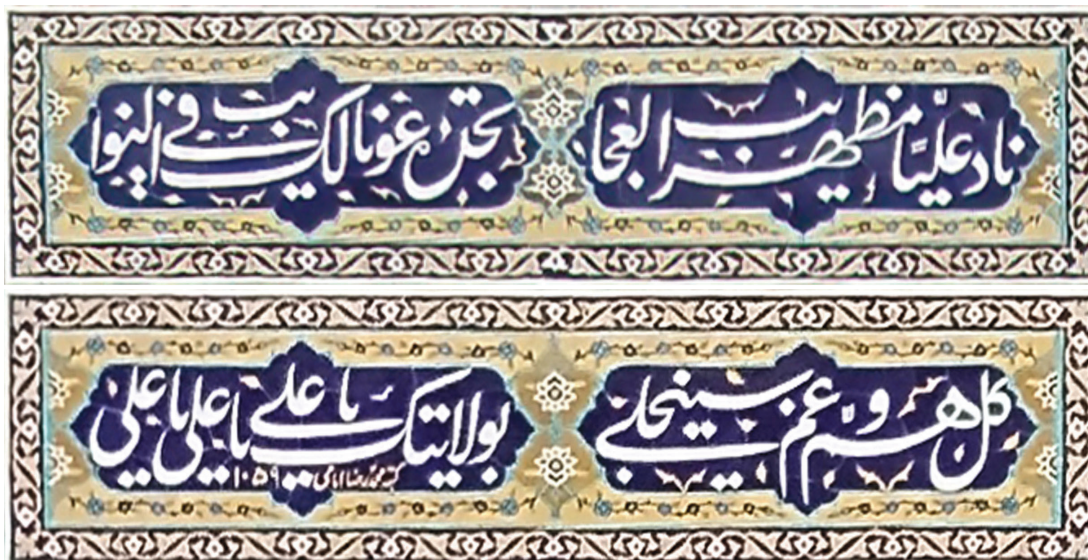 ناد علیًا مظهر العجائب
تجده عونا لک فی النوائب
کل هم و غم سینجلی
بولایتک یا علی یا علی یا علی
کتبه محمدرضا امامی ۱۰۵۹